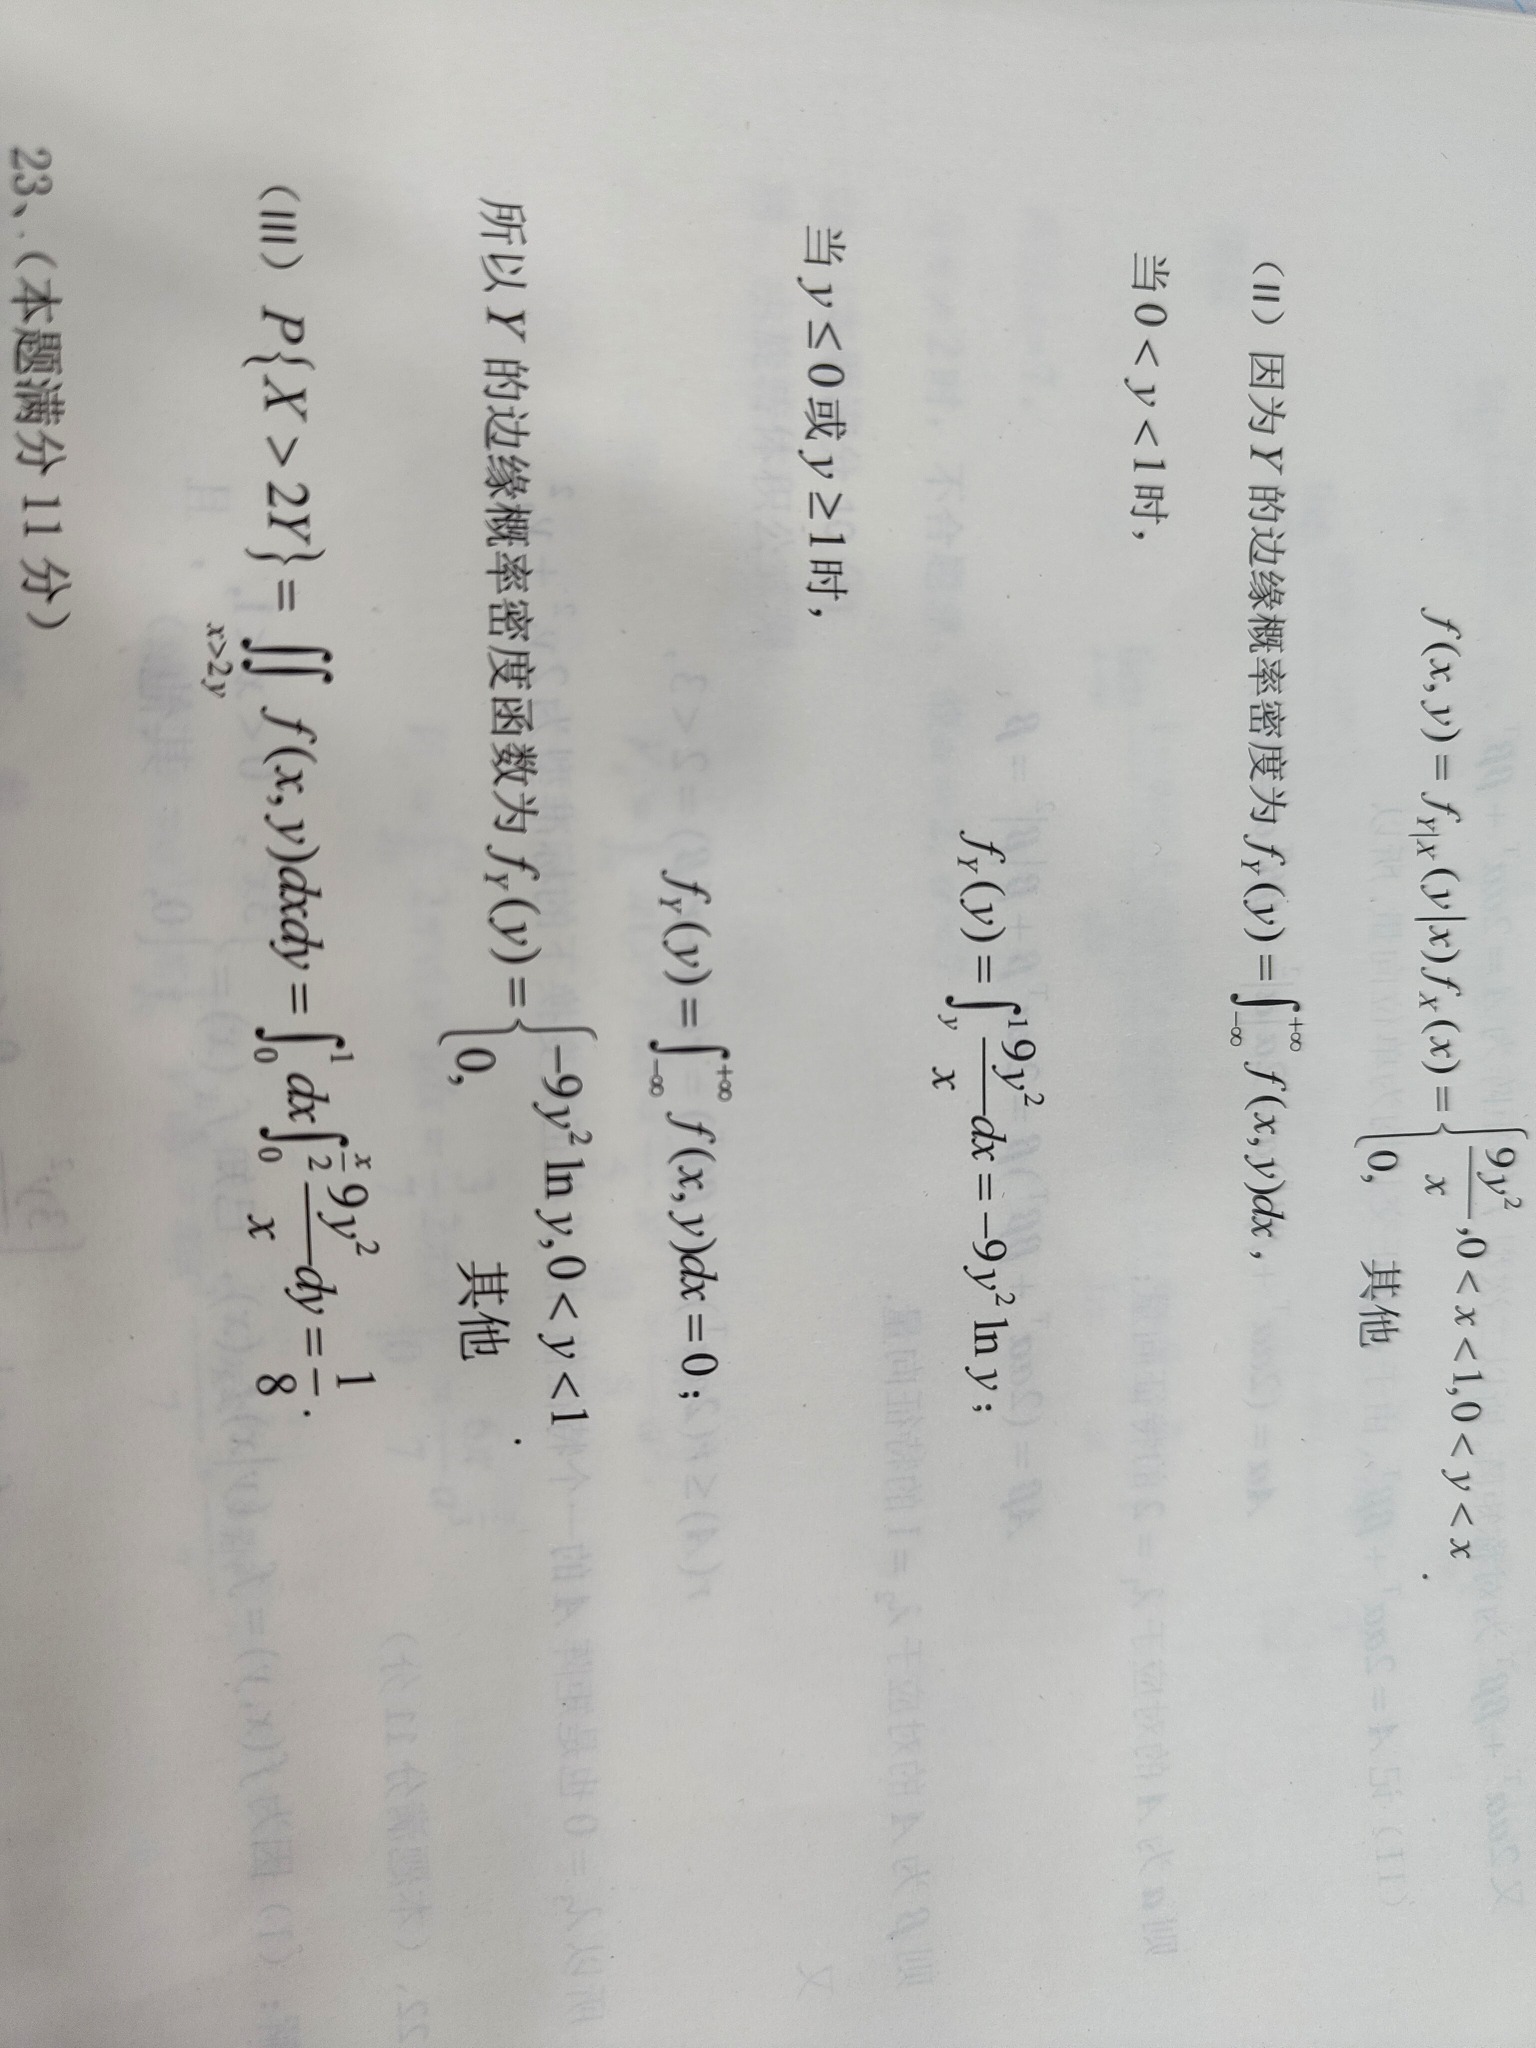 f(x,y)=f_{Y|X}(y|x)f_X(x)={9y²/x, 0<x<1,0<y<x
0, 其他.
（II）因为Y的边缘概率密度为f_Y(y)=∫_{-∞}^{+∞}f(x,y)dx，
当0<y<1时，
f_Y(y)=∫_y^1 9y²/x dx=-9y² ln y；
当y≤0或y≥1时，
f_Y(y)=∫_{-∞}^{+∞}f(x,y)dx=0；
所以Y的边缘概率密度函数为f_Y(y)={-9y² ln y,0<y<1
0, 其他.
（III）P{X>2Y}=∬_{x>2y}f(x,y)dxdy=∫_0^1dx∫_0^{x/2} 9y²/x dy=1/8.
23、（本题满分11分）